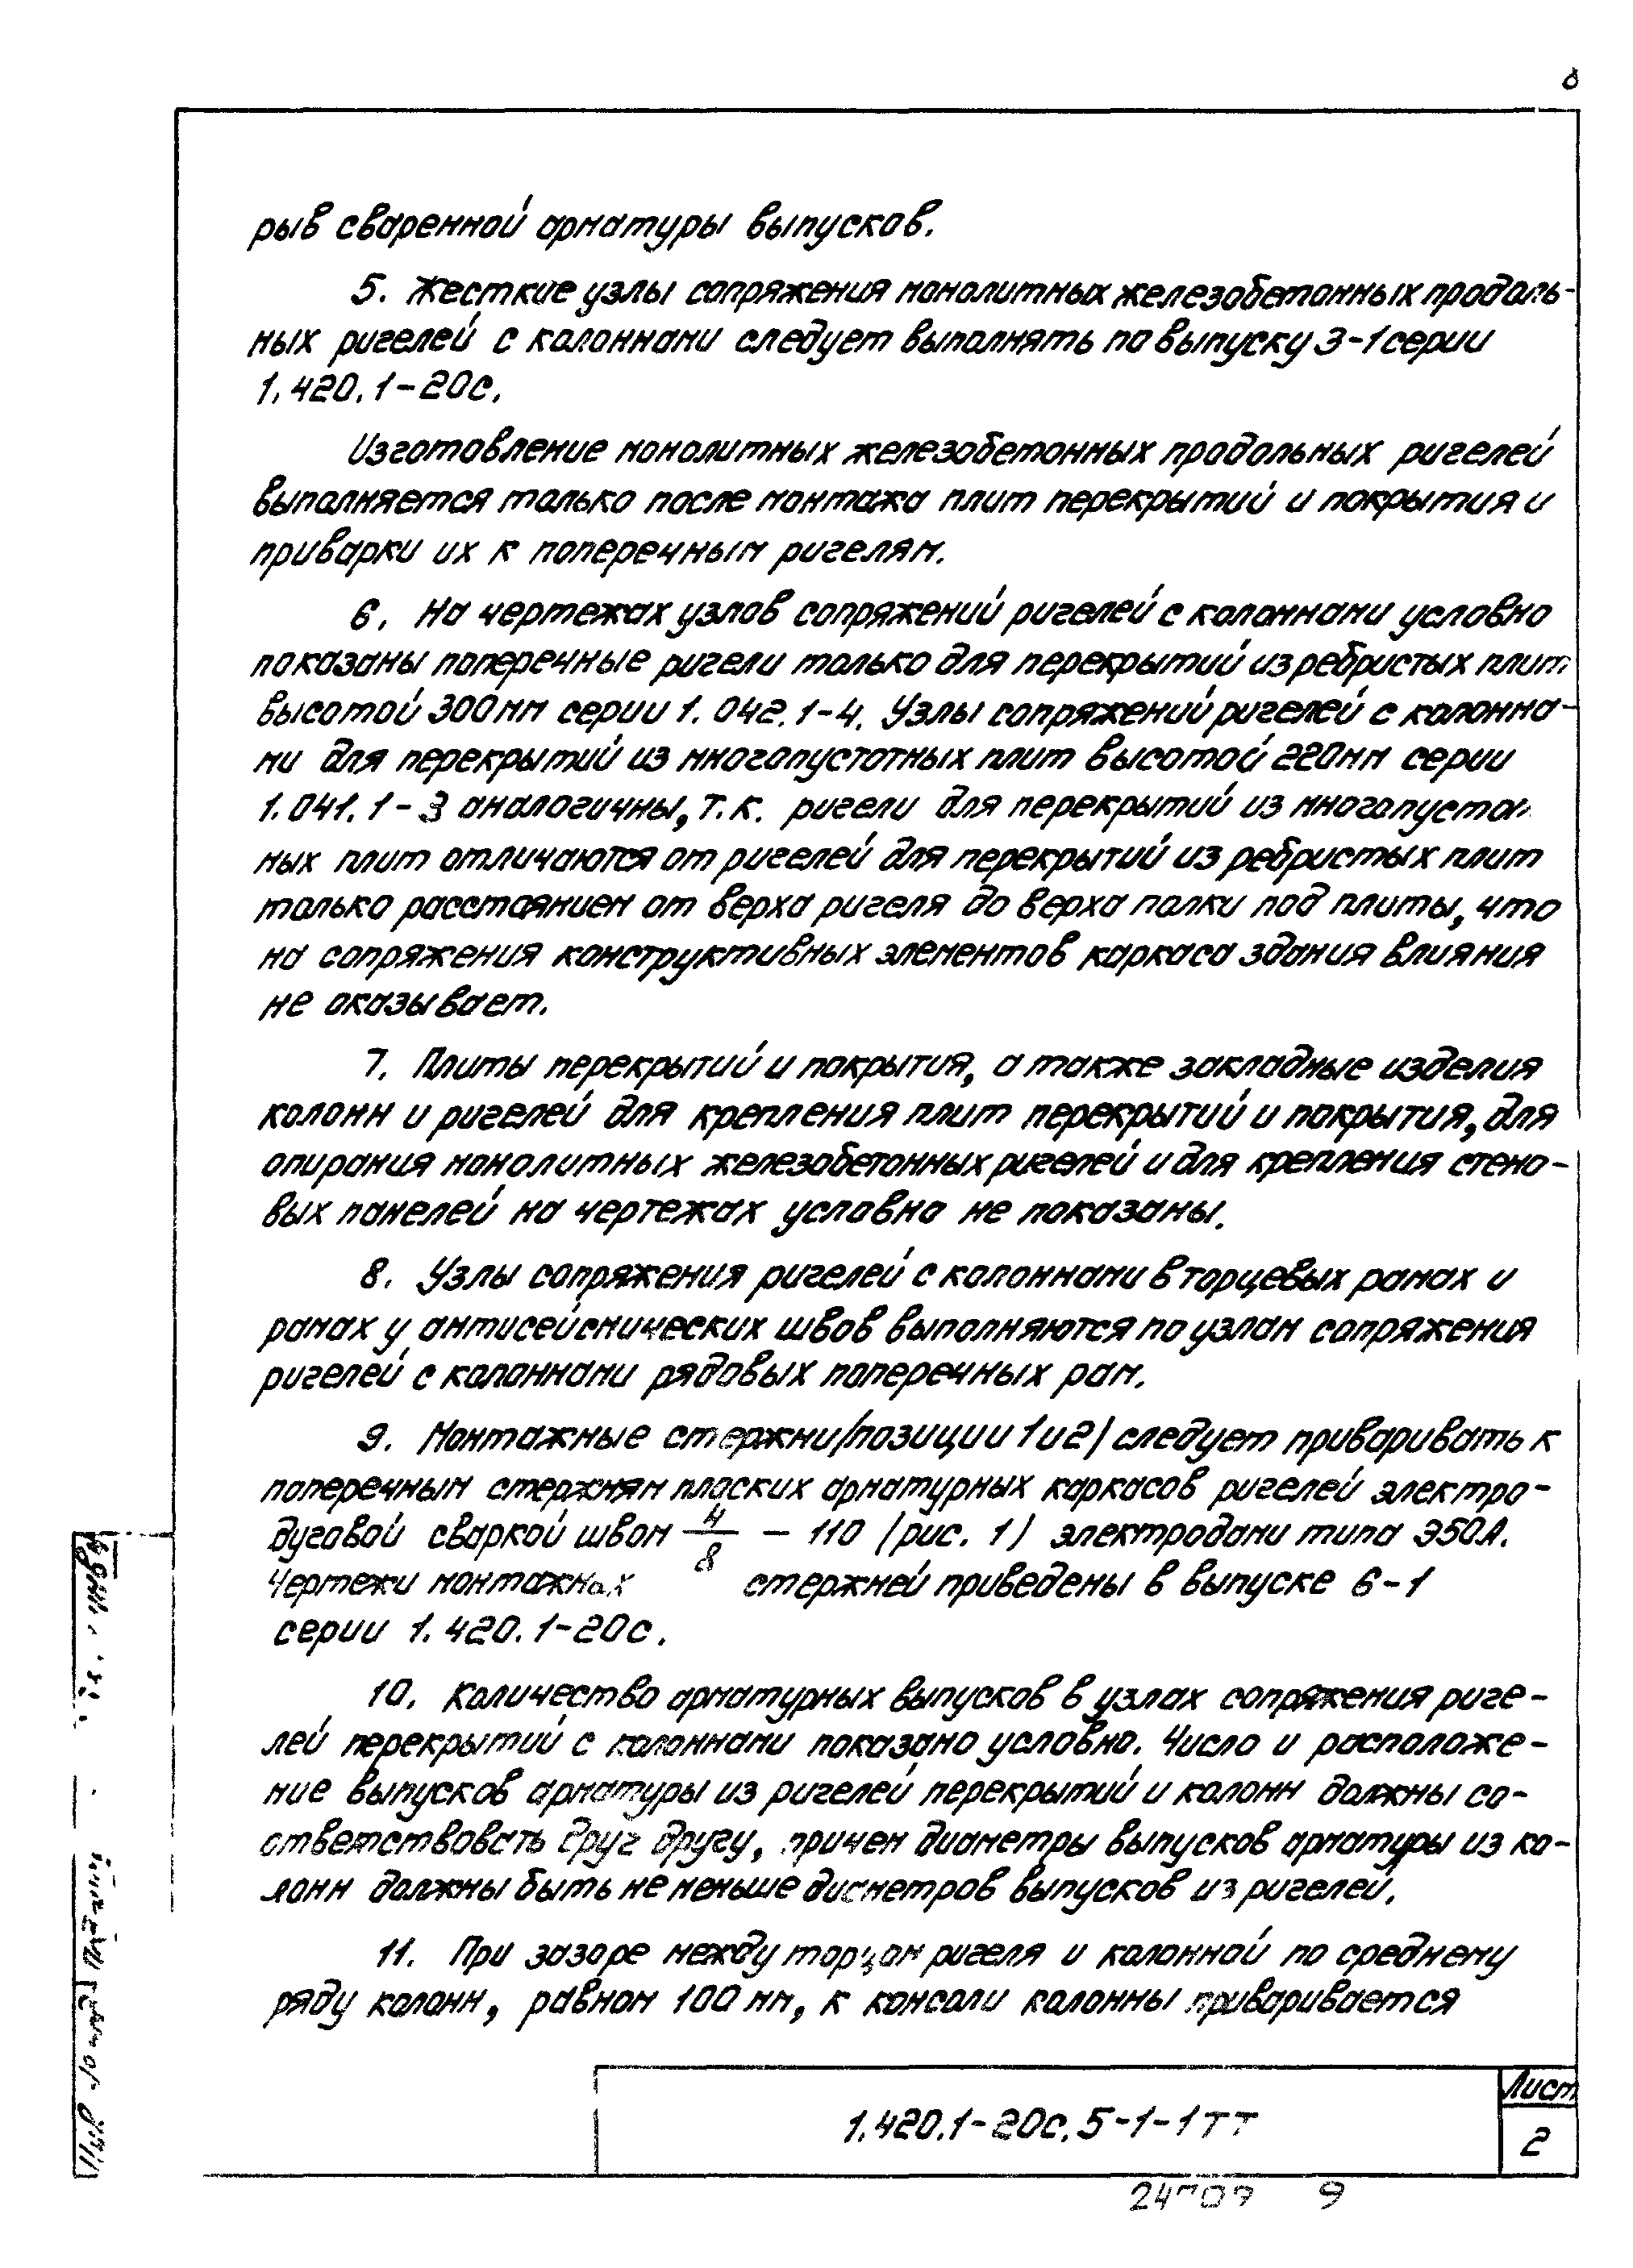 8
рыв сваренной арматуры выпусков.
5. Жесткие узлы сопряжения монолитных железобетонных продоль-
ных ригелей с колоннами следует выполнять по выпуску 3-1 серии
1.420.1-20с.
Изготовление монолитных железобетонных продольных ригелей
выполняется только после монтажа плит перекрытий и покрытия и
приварки их к поперечным ригелям.
6. На чертежах узлов сопряжений ригелей с колоннами условно
показаны поперечные ригели только для перекрытий из ребристых плит
высотой 300мм серии 1.042.1-4. Узлы сопряжений ригелей с колонна-
ми для перекрытий из многопустотных плит высотой 220мм серии
1.041.1-3 аналогичны, т.к. ригели для перекрытий из многопустот
ных плит отличаются от ригелей для перекрытий из ребристых плит
только расстоянием от верха ригеля до верха полки под плиты, что
на сопряжения конструктивных элементов каркаса здания влияния
не оказывает.
7. Плиты перекрытий и покрытия, а также закладные изделия
колонн и ригелей для крепления плит перекрытий и покрытия, для
опирания монолитных железобетонных ригелей и для крепления стено-
вых панелей на чертежах условно не показаны.
8. Узлы сопряжения ригелей с колоннами в торцевых рамах и
рамах у антисейсмических швов выполняются по узлам сопряжения
ригелей с колоннами рядовых поперечных рам.
9. Монтажные стержни /позиции 1 и 2/ следует приваривать к
поперечным стержням плоских арматурных каркасов ригелей электро-
дуговой сваркой швом 4/8 - 110 /рис. 1/ электродами типа Э50А.
Чертежи монтажных стержней приведены в выпуске 6-1
серии 1.420.1-20с.
10. Количество арматурных выпусков в узлах сопряжения риге-
лей перекрытий с колоннами показано условно. Число и расположе-
ние выпусков арматуры из ригелей перекрытий и колонн должны со-
ответствовать друг другу, причем диаметры выпусков арматуры из ко-
лонн должны быть не меньше диаметров выпусков из ригелей.
11. При зазоре между торцом ригеля и колонной по среднему
ряду колонн, равном 100 мм, к консоли колонны приваривается
1.420.1-20с.5-1-1ТТ
Лист
2
9